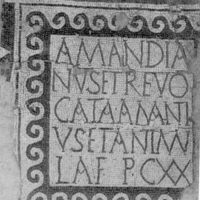 AMANDIA
NVSETREVO
CATAADANI
VSETANIVV
LAE P C XX